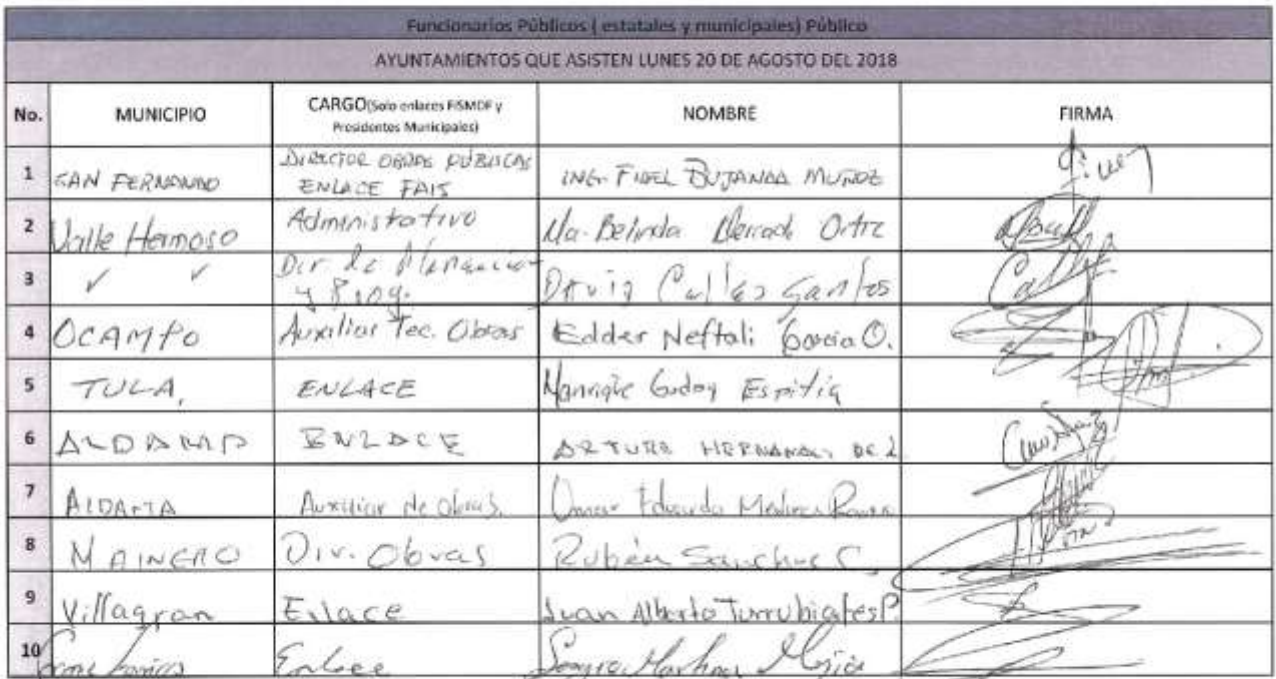 Funcionarios Públicos ( estatales y municipales) Público
AYUNTAMIENTOS QUE ASISTEN LUNES 20 DE AGOSTO DEL 2018
No. MUNICIPIO CARGO(Solo enlaces FISMDF y Presidentes Municipales) NOMBRE FIRMA
1 SAN FERNANDO DIRECTOR OBRAS PÚBLICAS ENLACE FAIS ING. FIDEL BUJANDA MUÑOZ
2 Valle Hermoso Administrativo Ma. Belinda Mercado Ortiz
3 ✓ ✓ Dir. de Planeación y Prog. David Santos
4 OCAMPO Auxiliar Tec. Obras Edder Neftali Garcia O.
5 TULA, ENLACE Manrique Godoy Espitia
6 ALDAMA ENLACE ARTURO HERNANDEZ DE L
7 AlDAMA Auxiliar de obras. Omar Eduardo Medina
8 MAINERO Dir. Obras Rubén Sanchez C.
9 Villagran Enlace Juan Alberto Turrubiates P.
10 Enlace Martinez